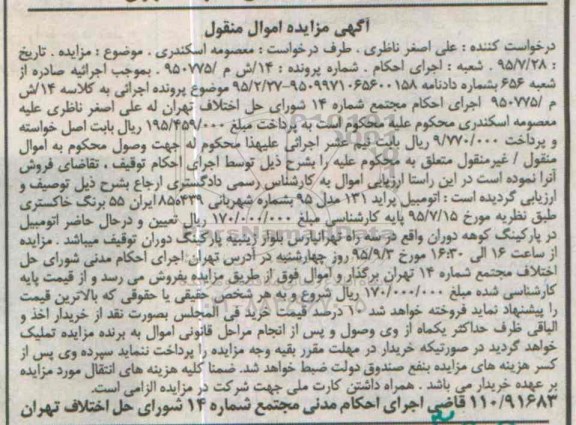 آگهی مزایده اموال منقول
درخواست کننده : علی اصغر ناظری . طرف درخواست : معصومه اسکندری . موضوع : مزایده . تاریخ
: ۹۵/۷/۲۸ . شعبه : اجرای احکام . شماره پرونده : ۱۴/ش م /۹۵۰۷۷۵ . بموجب اجرائیه صادره از
شعبه ۶۵۶ بشماره دادنامه ۹۵۰۹۹۷۱۰۶۵۶۰۰۱۵۸-۹۵/۲/۲۷ موضوع پرونده اجرائی به کلاسه ۱۴/ش
م /۹۵۰۷۷۵ اجرای احکام مجتمع شماره ۱۴ شورای حل اختلاف تهران له علی اصغر ناظری علیه
معصومه اسکندری محکوم علیه محکوم است به پرداخت مبلغ ۱۹۵/۴۵۹/۰۰۰ ریال بابت اصل خواسته
و پرداخت ۹/۷۷۰/۰۰۰ ریال بابت نیم عشر اجرائی علیهذا محکوم له جهت وصول محکوم به اموال
منقول / غیرمنقول متعلق به محکوم علیه را بشرح ذیل توسط اجرای احکام توقیف ، تقاضای فروش
آنرا نموده است در این راستا ارزیابی اموال به کارشناس رسمی دادگستری ارجاع بشرح ذیل توصیف و
ارزیابی گردیده است : اتومبیل پراید ۱۳۱ مدل ۹۵ بشماره شهربانی ۸۵۵۴۳۹ ایران ۵۵ برنگ خاکستری
طبق نظریه مورخ ۹۵/۷/۱۵ پایه کارشناسی مبلغ ۱۷۰/۰۰۰/۰۰۰ ریال تعیین و درحال حاضر اتومبیل
در پارکینگ کوهه دوران واقع در سه راه تهرانپارس بلوار زینبیه پارکینگ دوران توقیف میباشد . مزایده
از ساعت ۱۶ الی ۱۶:۳۰ مورخ ۹۵/۹/۳ روز چهارشنبه در آدرس تهران اجرای احکام مدنی شورای حل
اختلاف مجتمع شماره ۱۴ تهران برگذار و اموال فوق از طریق مزایده بفروش می رسد و از قیمت پایه
کارشناسی شده مبلغ ۱۷۰/۰۰۰/۰۰۰ ریال شروع و به هر شخص حقیقی یا حقوقی که بالاترین قیمت
را پیشنهاد نماید فروخته خواهد شد ۱۰ درصد قیمت خرید فی المجلس بصورت نقد از خریدار اخذ و
الباقی ظرف حداکثر یکماه از وی وصول و پس از انجام مراحل قانونی اموال به برنده مزایده تملیک
خواهد گردید در صورتیکه خریدار در مهلت مقرر بقیه وجه مزایده را پرداخت ننماید سپرده وی پس از
کسر هزینه های مزایده بنفع صندوق دولت ضبط خواهد شد. ضمنا کلیه هزینه های انتقال مورد مزایده
بر عهده خریدار می باشد . همراه داشتن کارت ملی جهت شرکت در مزایده الزامی است.
۱۱۰/۹۱۶۸۳ قاضی اجرای احکام مدنی مجتمع شماره ۱۴ شورای حل اختلاف تهران